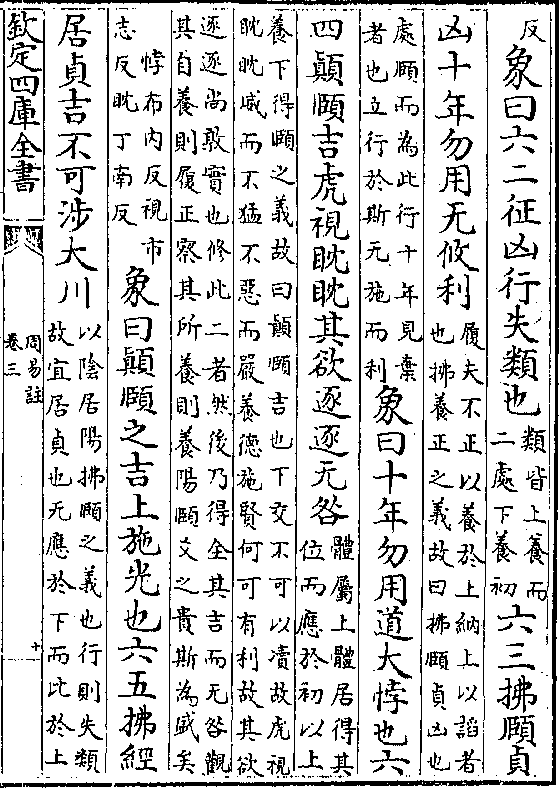 反　象曰六二征凶行失類也類皆上養而二處下養初六三拂頤貞
凶十年勿用无攸利履夫不正以養於上納上以諂者也拂養正之義故曰拂頤貞凶也
處頤而為此行十年見棄者也立行於斯无施而利象曰十年勿用道大悖也六
四顛頤吉虎視眈眈其欲逐逐无咎體屬上體居得其位而應於初以上
養下得頤之義故曰顛頤吉也下交不可以瀆故虎視眈眈威而不猛不惡而嚴養德施賢何可有利故其欲
逐逐尚敦實也修此二者然後乃得全其吉而无咎觀其自養則履正察其所養則養陽頤爻之貴斯為盛矣
悖布内反視市志反眈丁南反象曰顛頤之吉上施光也六五拂經
居貞吉不可涉大川以陰居陽拂頤之義也行則失類故宜居貞也无應於下而比於上
欽定四庫全書
周易註
卷三
十